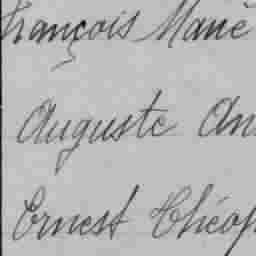 François Marie
Auguste An
Ernest Théop